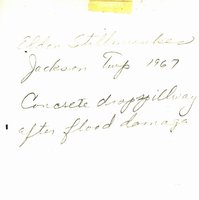 Elden Stillmunkes
Jackson Twp 1967
Concrete dropspillway
after flood damage